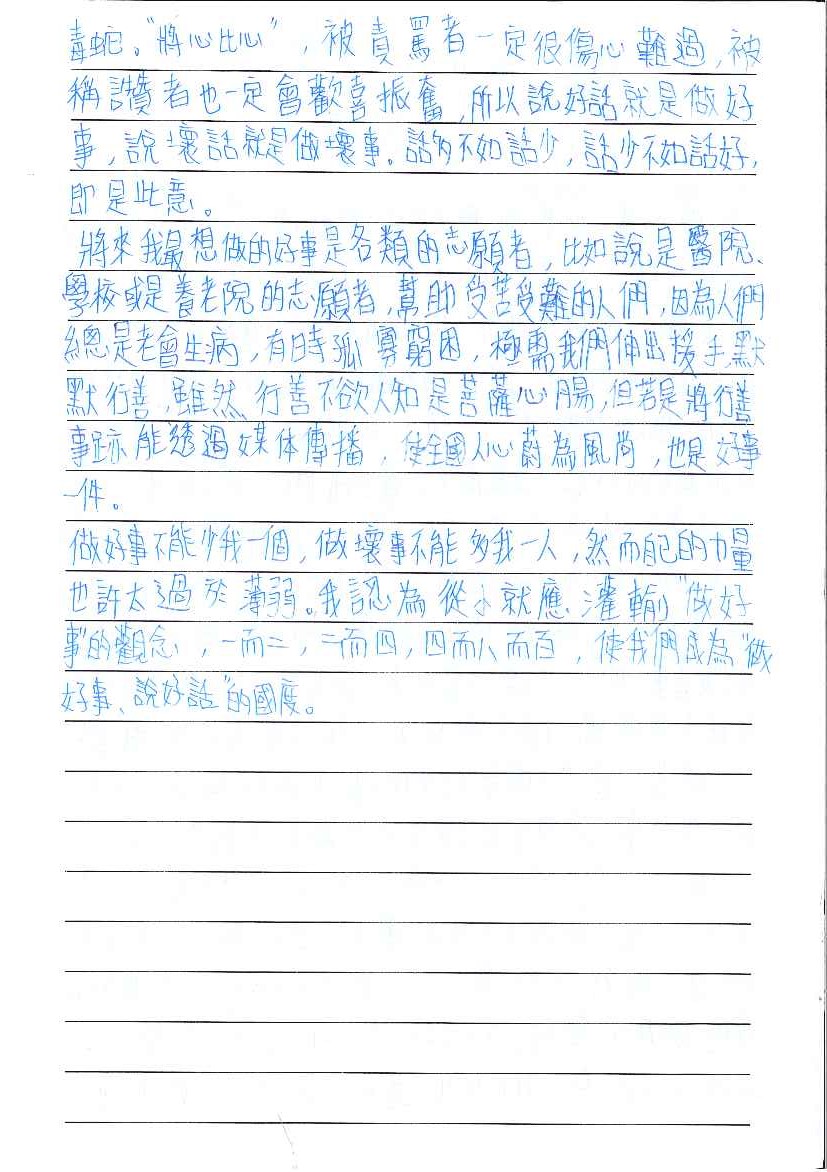 毒蛇。"將心比心"，被責罵者一定很傷心難過,被
稱讚者也一定會歡喜振奮,所以說好話就是做好
事,說壞話就是做壞事。話多不如話少,話少不如話好,
即是此意。
將來我最想做的好事是各類的志願者,比如說是醫院、
學校或是養老院的志願者,幫助受苦受難的人們,因為人們
總是老會生病,有時孤寡窮困,極需我們伸出援手,默
默行善,雖然行善不欲人知是菩薩心腸,但若是將行善
事跡能透過媒体傳播,使全國人心蔚為風尚,也是好事
一件。
做好事不能少我一個,做壞事不能多我一人,然而自己的力量
也許太過於薄弱。我認為從小就應灌輸"做好
事"的觀念,一而二,二而四,四而八而百,使我們成為"做
好事、說好話"的國度。